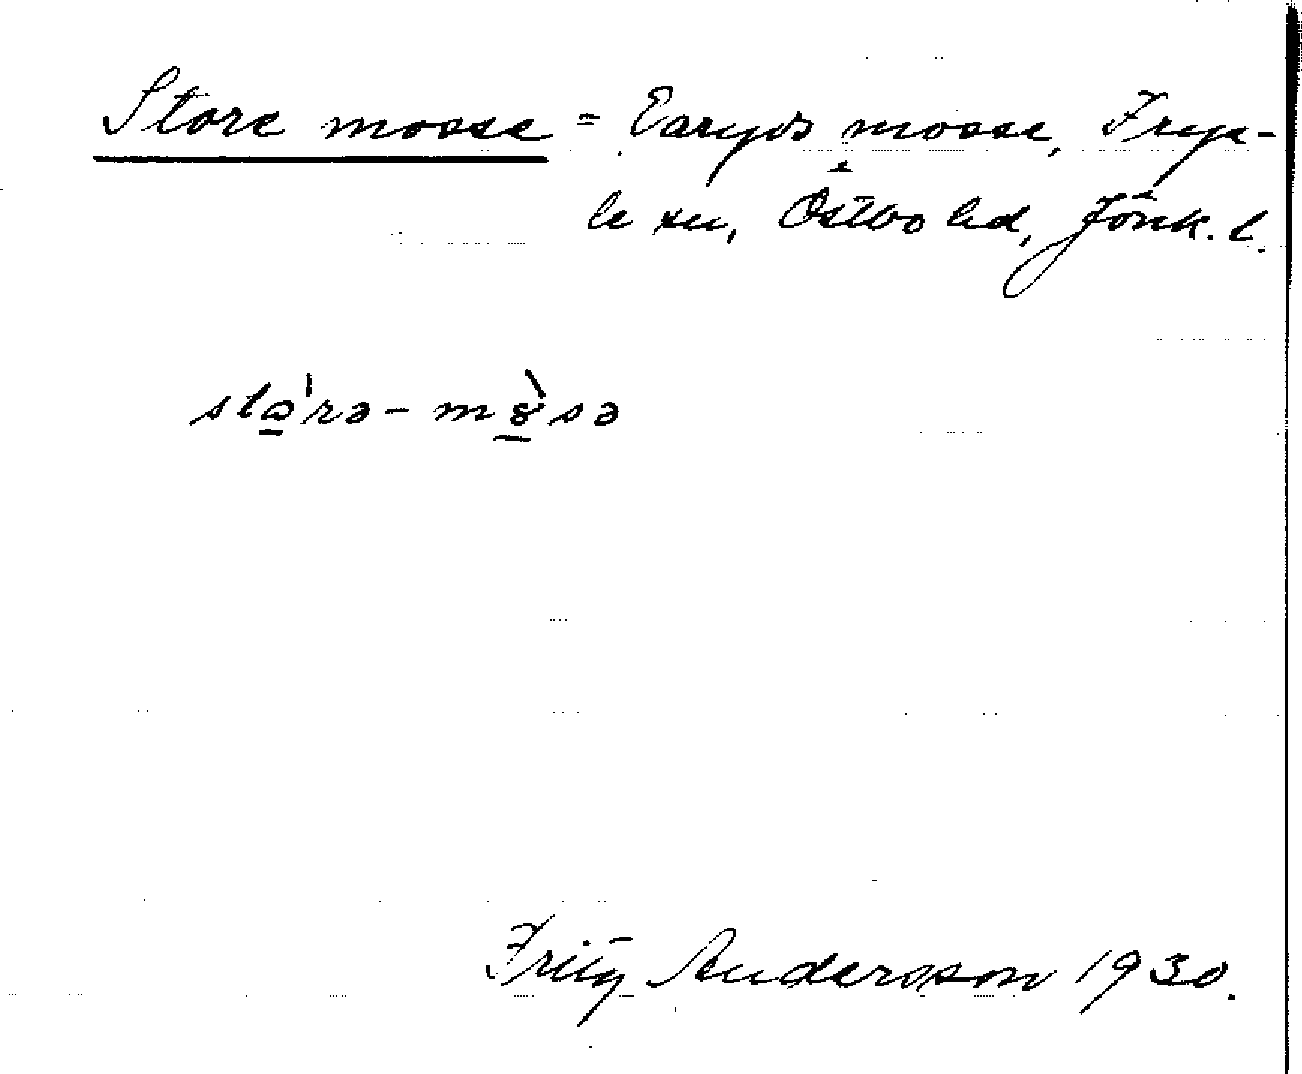 Store mosse = Earyds mosse, Frye-
le sn, Östbo hd, Jönk. l.
sto̱'rə - mɤ̱̀sə
Fritz Andersson 1930.